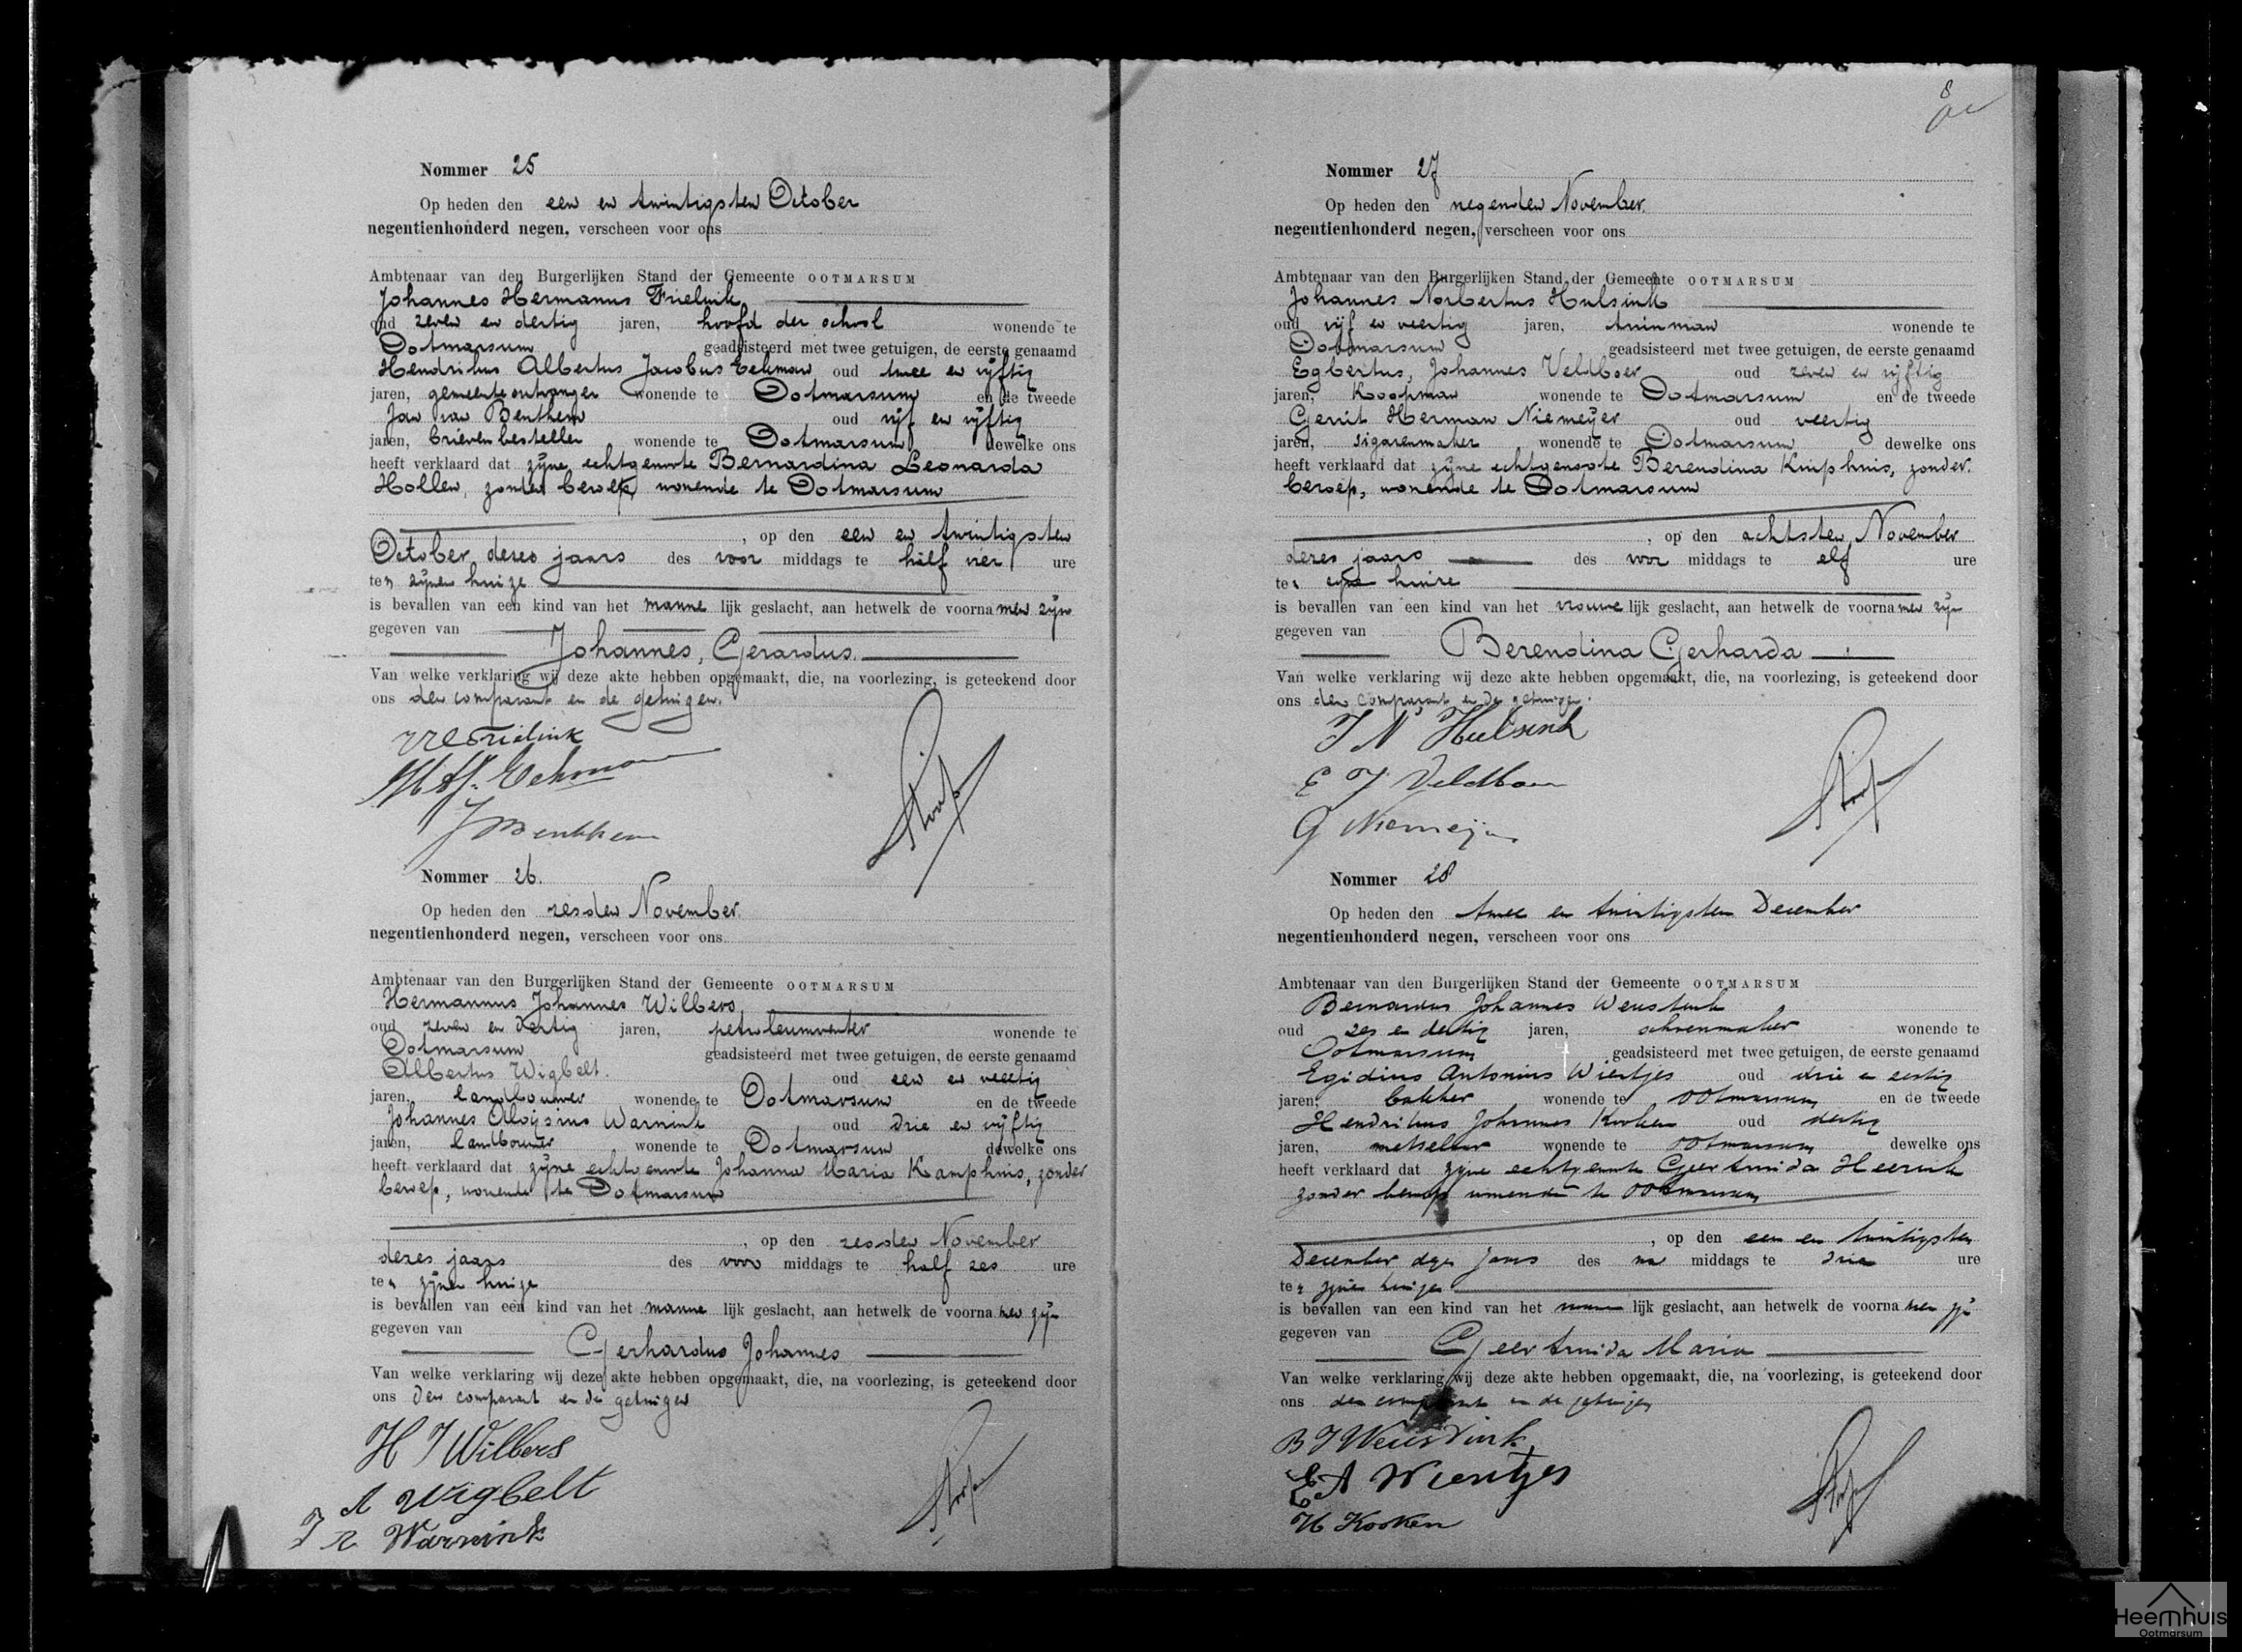 Nommer 25
Op heden den een en twintigsten October
negentienhonderd negen, verscheen voor ons
Ambtenaar van den Burgerlijken Stand der Gemeente OOTMARSUM
Johannes Hermannus Frielink
oud zeven en dertig jaren, hoofd der school wonende te
Ootmarsum geadsisteerd met twee getuigen, de eerste genaamd
Hendrikus Albertus Jacobus Eekman oud twee en vijftig
jaren, gemeenteontvanger wonende te Ootmarsum en de tweede
Jan van Benthem oud vijf en vijftig
jaren, brievenbesteller wonende te Ootmarsum dewelke ons
heeft verklaard dat zijne echtgenoote Bernardina Leonarda
Hollen, zonder beroep, wonende te Ootmarsum
, op den een en twintigsten
October dezes jaars des voor middags te half vier ure
ten zijnen huize
is bevallen van een kind van het manne lijk geslacht, aan hetwelk de voornamen zijn
gegeven van
Johannes, Gerardus.
Van welke verklaring wij deze akte hebben opgemaakt, die, na voorlezing, is geteekend door
ons den comparant en de getuigen.
Frielink
Eekman
J v Benthem
Nommer 26.
Op heden den zesden November
negentienhonderd negen, verscheen voor ons
Ambtenaar van den Burgerlijken Stand der Gemeente OOTMARSUM
Hermannus Johannes Wilbers
oud zeven en dertig jaren, petroleumventer wonende te
Ootmarsum geadsisteerd met twee getuigen, de eerste genaamd
Albertus Wigbelt. oud een en veertig
jaren, landbouwer wonende te Ootmarsum en de tweede
Johannes Aloysius Warnink oud drie en vijftig
jaren, landbouwer wonende te Ootmarsum dewelke ons
heeft verklaard dat zijne echtgenoote Johanna Maria Kamphuis, zonder
beroep, wonende te Ootmarsum
, op den zesden November
dezes jaars des voor middags te half zes ure
ten zijnen huize
is bevallen van een kind van het manne lijk geslacht, aan hetwelk de voornamen zijn
gegeven van
Gerhardus Johannes
Van welke verklaring wij deze akte hebben opgemaakt, die, na voorlezing, is geteekend door
ons den comparant en de getuigen
H J Wilbers
A Wigbelt
J A Warnink
8
Nommer 27
Op heden den negenden November.
negentienhonderd negen, verscheen voor ons
Ambtenaar van den Burgerlijken Stand der Gemeente OOTMARSUM
Johannes Norbertus Hulsink
oud vijf en veertig jaren, tuinman wonende te
Ootmarsum geadsisteerd met twee getuigen, de eerste genaamd
Egbertus, Johannes Veldboer oud zeven en vijftig
jaren, Koopman wonende te Ootmarsum en de tweede
Gerrit Herman Niemeijer oud veertig
jaren, sigarenmaker wonende te Ootmarsum dewelke ons
heeft verklaard dat zijne echtgenoote Berendina Kniphuis, zonder
beroep, wonende te Ootmarsum
, op den achtsten November
dezes jaars des voor middags te elf ure
ten huize
is bevallen van een kind van het vrouwe lijk geslacht, aan hetwelk de voornamen zijn
gegeven van
Berendina Gerharda
Van welke verklaring wij deze akte hebben opgemaakt, die, na voorlezing, is geteekend door
ons den comparant en de getuigen.
J N Hulsink
E J Veldboer
G Niemeijer
Nommer 28
Op heden den twee en twintigsten December
negentienhonderd negen, verscheen voor ons
Ambtenaar van den Burgerlijken Stand der Gemeente OOTMARSUM
Bernardus Johannes Weusthuis
oud zes en dertig jaren, schoenmaker wonende te
Ootmarsum geadsisteerd met twee getuigen, de eerste genaamd
Egidius Antonius Wientjes oud drie en zestig
jaren, bakker wonende te Ootmarsum en de tweede
Hendrikus Johannes Kroken oud dertig
jaren, metselaar wonende te Ootmarsum dewelke ons
heeft verklaard dat zijne echtgenoote Geertruida Heerink
zonder beroep wonende te Ootmarsum
, op den een en twintigsten
December dezes jaars des na middags te drie ure
ten zijnen huize
is bevallen van een kind van het lijk geslacht, aan hetwelk de voornamen zijn
gegeven van
Geertruida Maria
Van welke verklaring wij deze akte hebben opgemaakt, die, na voorlezing, is geteekend door
ons den comparant en de getuigen
B J
E A Wientjes
H Kroken
Heemhuis
Ootmarsum